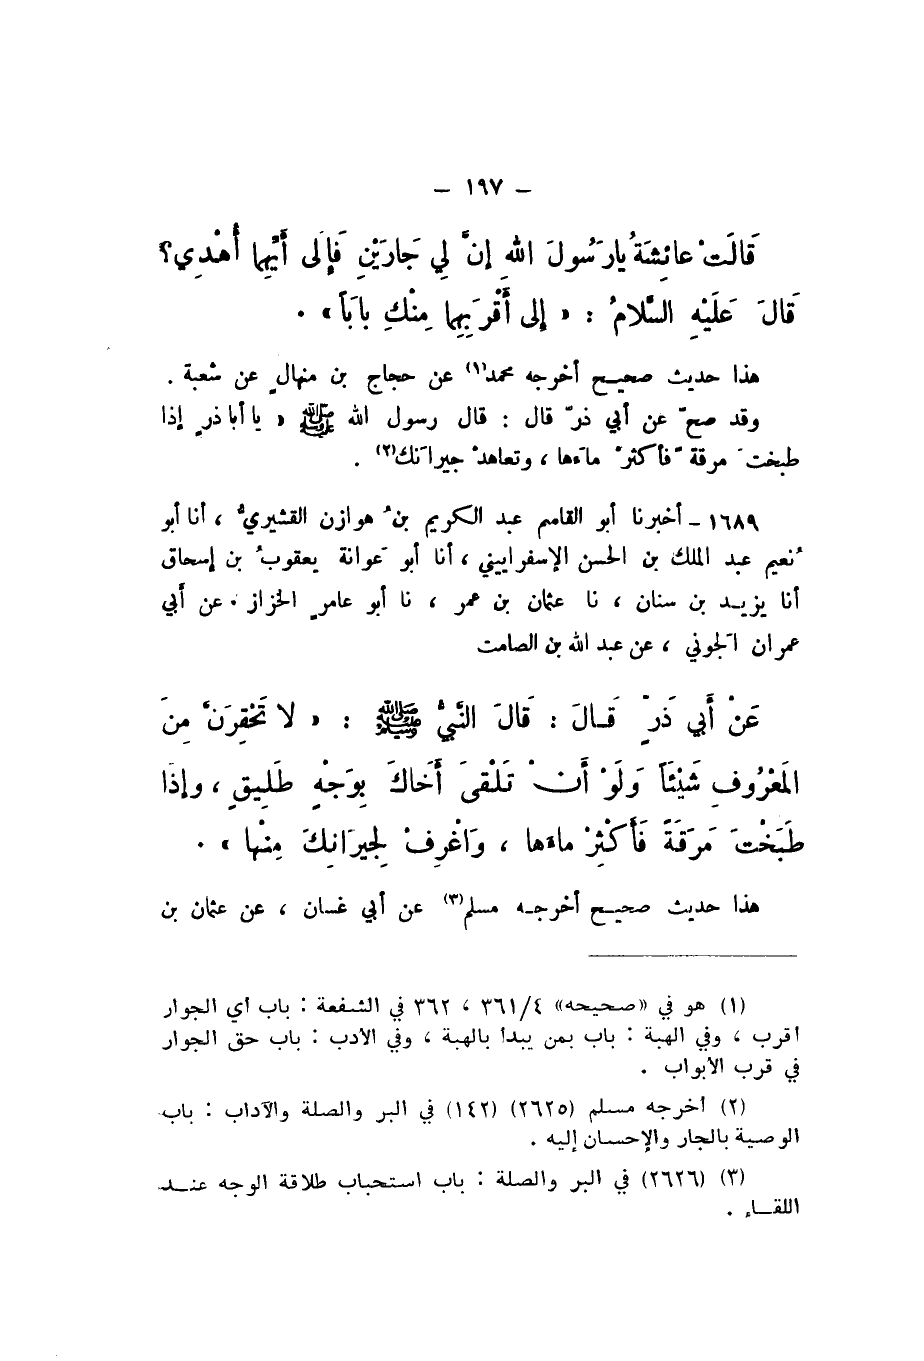 - ١٩٧ -
قَالَتْ عائِشَةُ يارَسُولَ اللهِ إنَّ لِي جَارَيْنِ فَإِلَى أَيِّهِما أُهْدِي؟
قَالَ عَلَيْهِ السَّلامُ : « إلى أَقْرَبِهِما مِنْكِ بابَاً » .
هذا حديث صحيح أخرجه محمد(١) عن حجاج بن منهالٍ عن شعبة .
وقد صحّ عن أبي ذرّ قال : قال رسول الله ﷺ « يا أبا ذرٍ إذا
طبختَ مرقة ً فأكثرْ ماءَها ، وتعاهدْ جيرانَك(٢) .
١٦٨٩ - أخبرنا أبو القاسم عبد الكريم بنُ هوازن القشيريُّ ، أنا أبو
نُعيم عبد الملك بن الحسن الإسفراييني ، أنا أبو عَوانة يعقوبُ بن إسحاق
أنا يزيد بن سنان ، نا عثمان بن عمر ، نا أبو عامرٍ الخزاز . عن أبي
عمران الجَوني ، عن عبد الله بن الصامت
عَنْ أَبي ذَرٍّ قَالَ : قَالَ النَّبيُّ ﷺ : « لا تَحْقِرَنَّ مِنَ
المَعْرُوفِ شَيْئَاً وَلَوْ أَنْ تَلْقَى أَخَاكَ بِوَجْهٍ طَلِيقٍ ، وإذَا
طَبَخْتَ مَرَقَةً فَأَكْثِرْ ماءَها ، وَاغْرِفْ لِجيرَانِكَ مِنْها » .
هذا حديث صحيح أخرجه مسلم(٣) عن أبي غسان ، عن عثمان بن
(١) هو في «صحيحه» ٣٦١/٤ ، ٣٦٢ في الشفعة : باب أي الجوار
أقرب ، وفي الهبة : باب بمن يبدأ بالهبة ، وفي الأدب : باب حق الجوار
في قرب الأبواب .
(٢) أخرجه مسلم (٢٦٢٥) (١٤٢) في البر والصلة والآداب : باب
الوصية بالجار والإحسان إليه .
(٣) (٢٦٢٦) في البر والصلة : باب استحباب طلاقة الوجه عند
اللقاء .